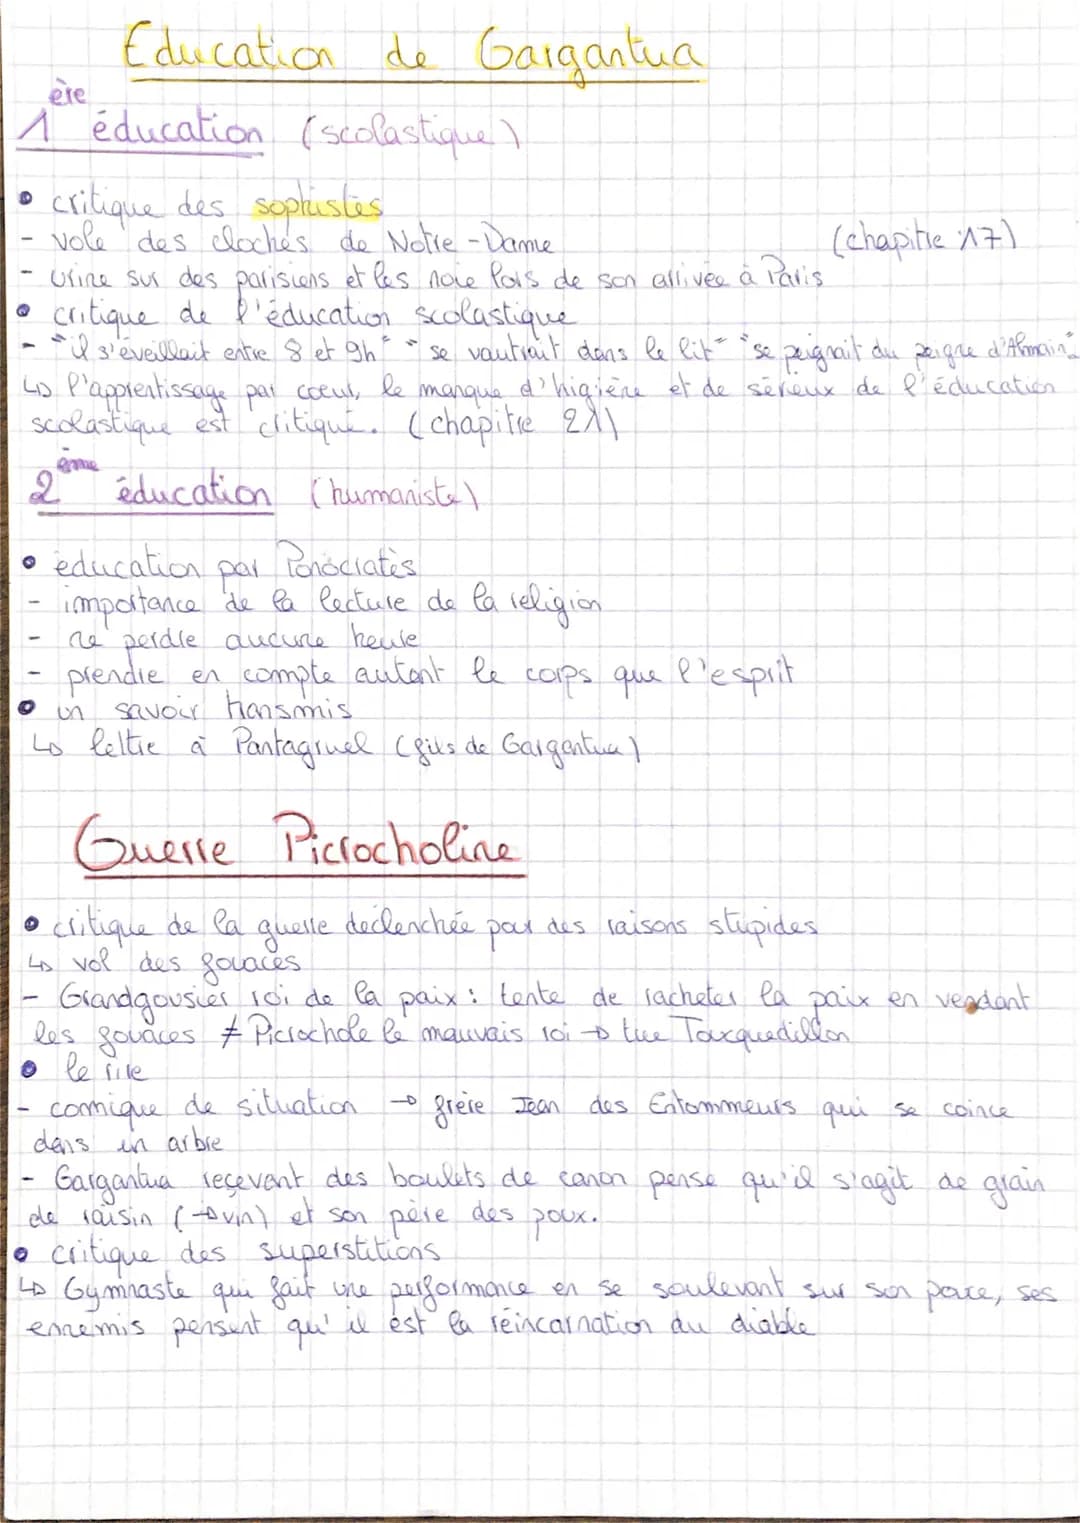 Education de Gargantua
1ère éducation (scolastique)
• critique des sophistes
- vole des cloches de Notre-Dame (chapitre 17)
- urine sur des parisiens et les noie lors de son arrivée à Paris
• critique de l'éducation scolastique
- "il s'éveillait entre 8 et 9h" "se vautrait dans le lit" "se peignait du peigne d'Almain"
↳ l'apprentissage par coeur, le manque d'higiène et de sérieux de l'éducation
scolastique est critiqué. (chapitre 21)
2ème éducation (humaniste)
• éducation par Ponocratès
- importance de la lecture de la religion
- ne perdre aucune heure
- prendre en compte autant le corps que l'esprit
• un savoir transmis
↳ lettre à Pantagruel (fils de Gargantua)
Guerre Picrocholine
• critique de la guerre declenchée pour des raisons stupides
↳ vol des fouaces
- Grandgousier roi de la paix : tente de racheter la paix en vendant
les fouaces ≠ Picrochole le mauvais roi → tue Touquedillon
• le rire
- comique de situation → frère Jean des Entommeurs qui se coince
dans un arbre
- Gargantua reçevant des boulets de canon pense qu'il s'agit de grain
de raisin (→ vin) et son père des poux.
• critique des superstitions
↳ Gymnaste qui fait une performance en se soulevant sur son pouce, ses
ennemis pensent qu'il est la réincarnation du diable